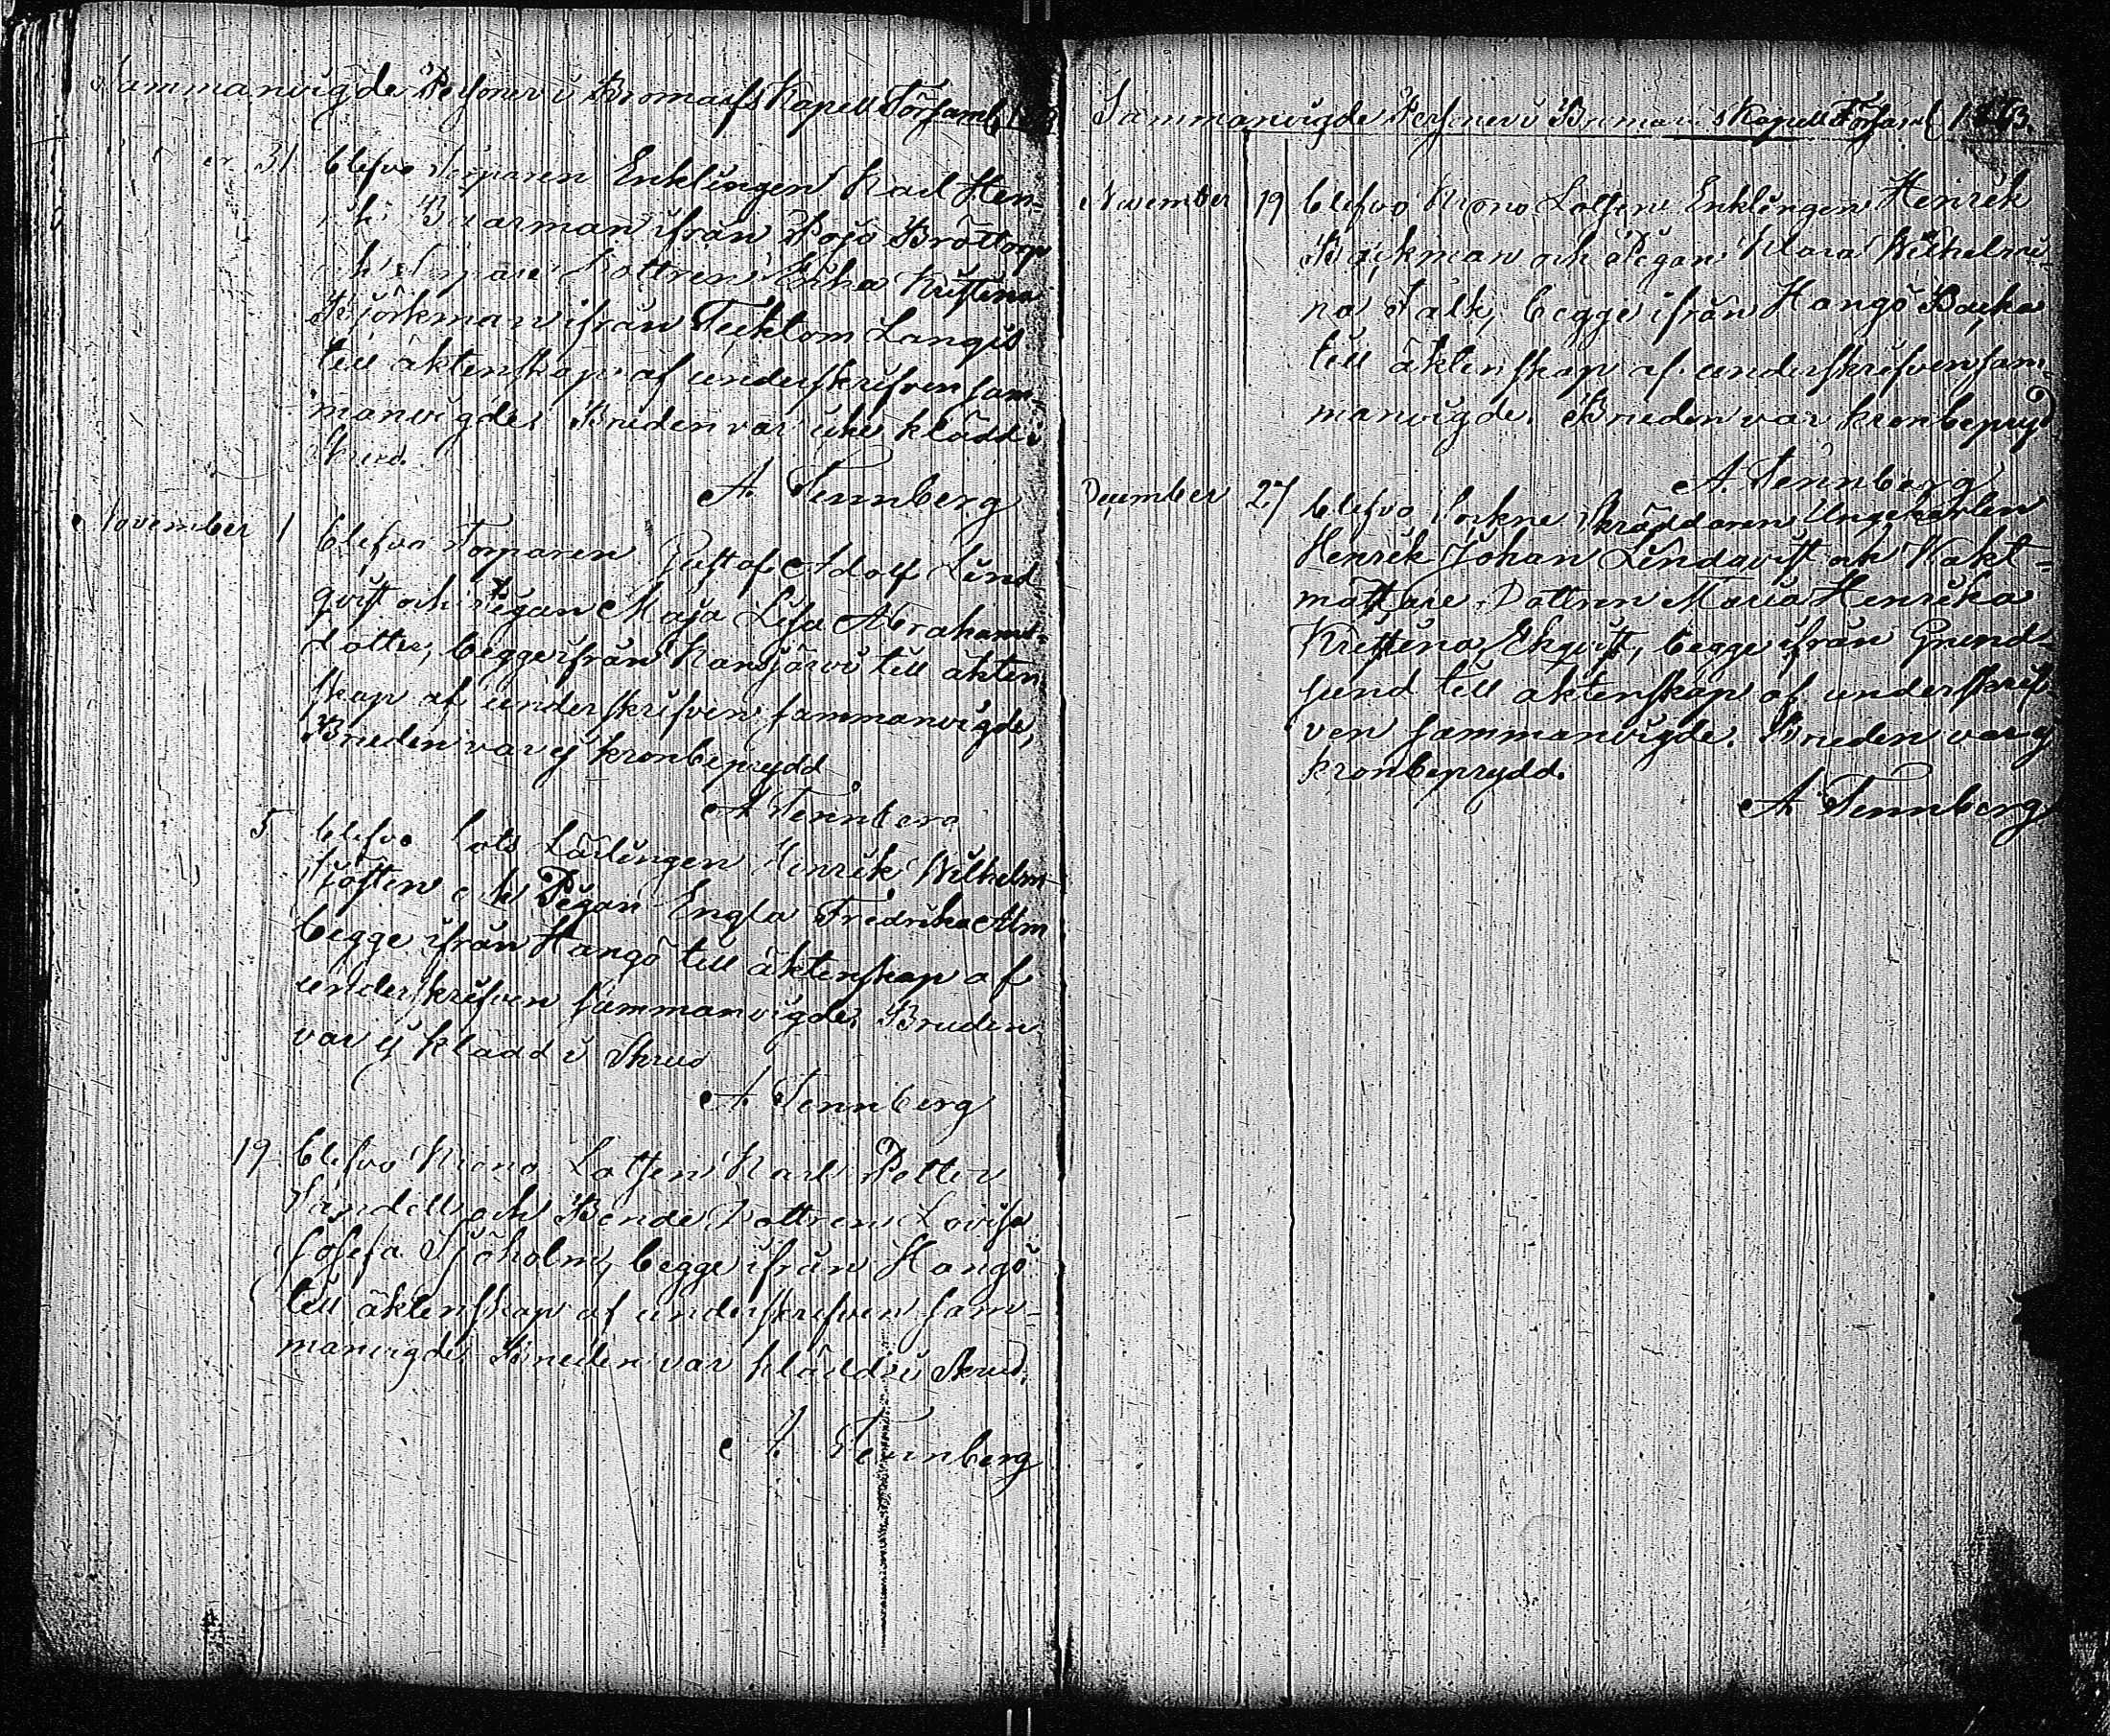 Sammanwigde Personer i Bromarfs Kapell Församl
31 blefvo Torparen Enklingen Karl Hen-
ifrån Pojo Bröttorp
Dottren Ulrika Kristina
Björkman ifrån Tecklom Langis
till äktenskap af underskrifven sam-
manvigde. Bruden var icke klädd i
Skrud.
A. Tennberg
November 1 blefvo Torparen Gustaf Adolf Lind
qvist och Pigan Maja Lisa Abrahams-
dotter, begge ifrån Kansjärvi till äkten
skap af underskrifven sammanvigde,
Bruden var ej kronbeprydd
A Tennberg
5 blefvo Lots Lärlingen Henrik Wilhelm
och Pigan Engla Fredrika Alm
begge ifrån Hangö till äktenskap af
underskrifven sammanvigde. Bruden
var ej klädd i Skrud
A. Tennberg
19 blefvo Krono Lotsen Karl Petter
Sandell och Bonde Dottren Lovisa
Josefa Sjöholm, begge ifrån Hangö
till äktenskap af underskrifven sam-
manvigde. Bruden var klädd i Skrud.
A. Tennberg
Sammanvigde Personer i Bromarfs Kapell Församl 1863.
November 19 blefvo Krono Lotsen Enklingen Henrik
Backman och Pigan Klara Wilhelmi-
na Falk, begge ifrån Hangö Backa
till äktenskap af underskrifven sam-
manvigde. Bruden var kronbepryd
A. Tennberg
December 27 blefvo Sockne Skräddaren Ungkarlen
Henrik Johan Lindqvist och Vakt-
mästare Dottren Maria Henrika
Kristina Ekqvist, begge ifrån Grund-
sund till äktenskap af underskrif-
ven sammanvigde. Bruden var ej
kronbeprydd.
A. Tennberg